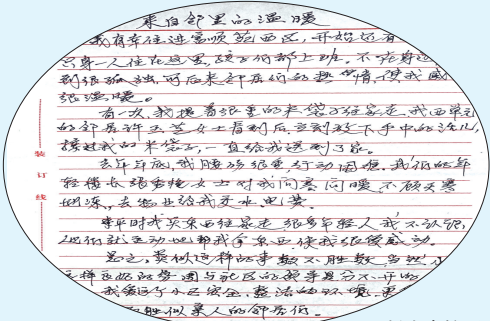 来自邻里的温暖
我有幸住进富顺苑西区，开始还有
只身一人住在这里，孩子们都上班。不在身边
到很孤独，可后来邻居们的热情，使我感
很温暖。
有一次，我提着很重的米袋子往家走，我西单元
的邻居许玉芝女士看到后，立刻放下手中的活儿，
接过我的米袋子，一直给我送到了家。
去年年底，我腰疼很重，行动困难。我们的年
轻楼长张女士对我问寒问暖，不顾天寒
地冻，去物业给我买水电费。
平时我买东西往家走，很多年轻人我不认识，
他们就主动地帮我拿东西，使我很受感动。
总之，类似这样的事数不胜数，当然
这样良好的氛围与社区的领导是分不开的
我爱这个小区安全，整洁的环境，更
的邻居们。
装
订
线